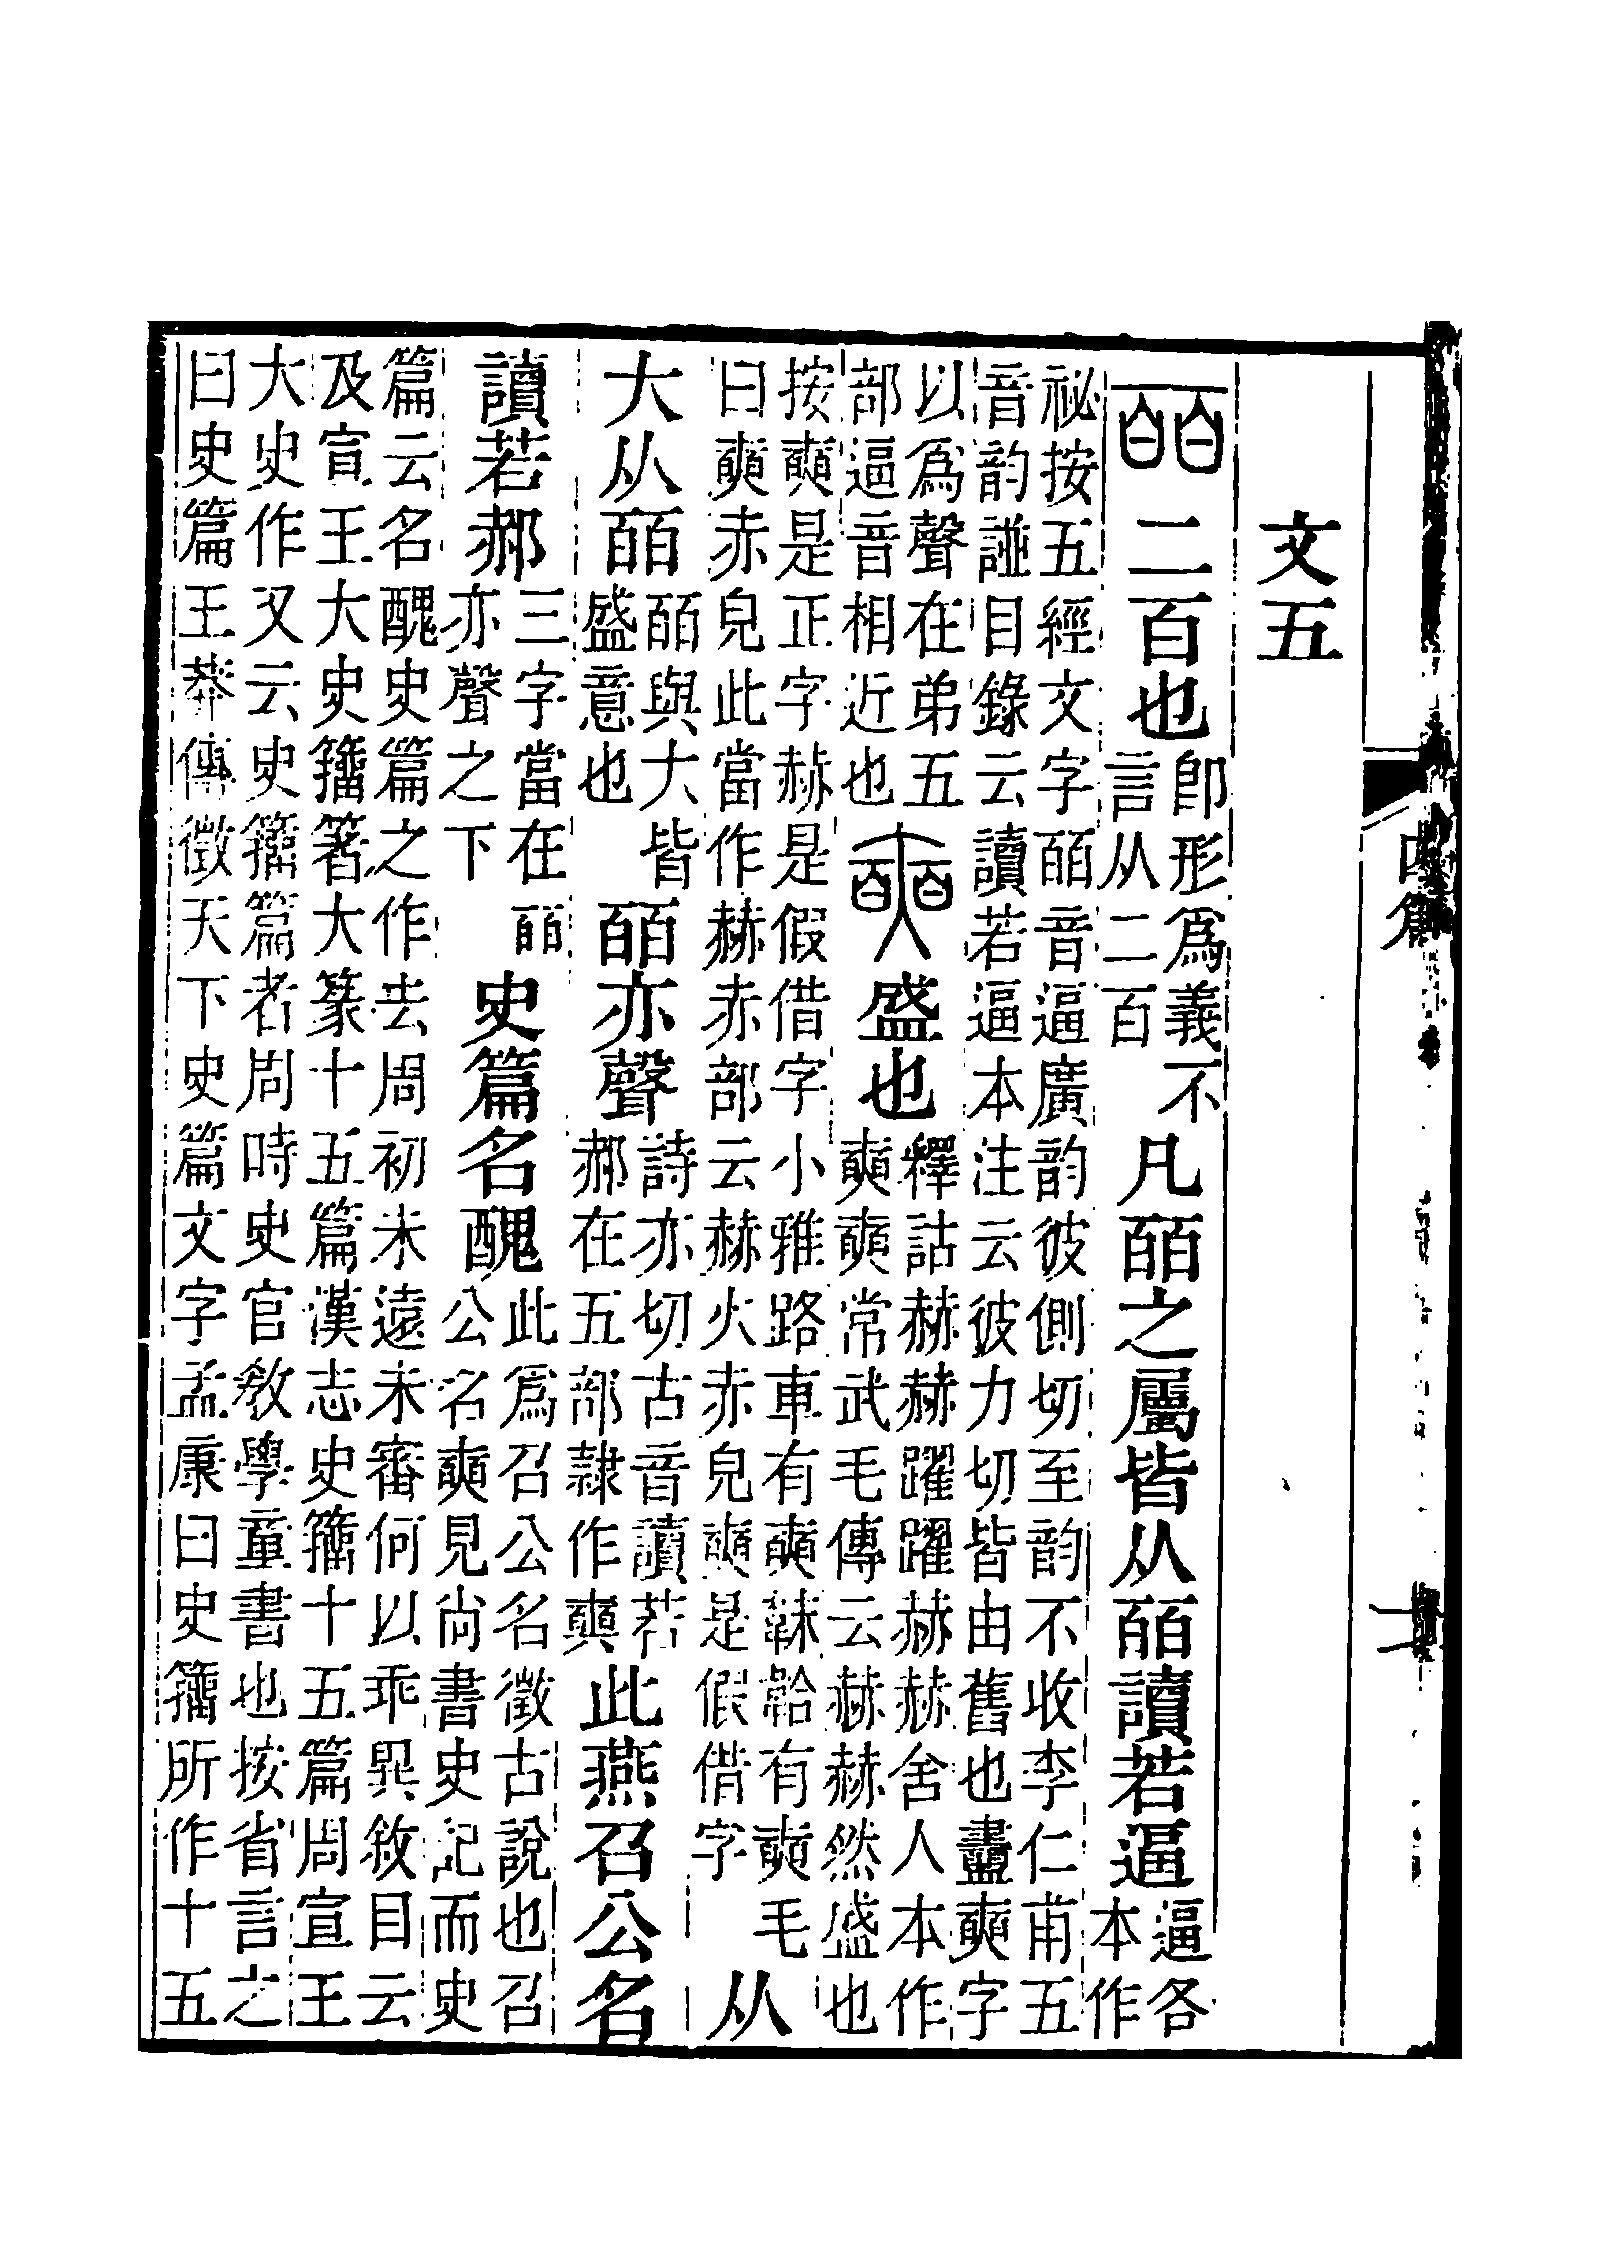 文五
皕二百也即形爲義不
言从二百
凡皕之屬皆从皕讀若逼逼各
本作
祕按五經文字皕音逼廣韵彼側切至韵不收李仁甫五
音韵譜目錄云讀若逼本注云彼力切皆由舊也盡奭字
以爲聲在弟五
部逼音相近也
奭盛也釋詁赫赫躍躍赫赫舍人本作
奭奭常武毛傳云赫赫然盛也
按奭是正字赫是假借字小雅路車有奭韎韐有奭毛
曰奭赤皃此當作赫赤部云赫火赤皃奭是假借字
从
大从皕皕與大皆
盛意也
皕亦聲詩亦切古音讀若
郝在五部隷作奭
此燕召公名
讀若郝三字當在皕
亦聲之下
史篇名醜此爲召公名徵古說也召
公名奭見尚書史記而史
篇云名醜史篇之作去周初未遠未審何以乖異敘目云
及宣王大史籒箸大篆十五篇漢志史籒十五篇周宣王
大史作又云史籒篇者周時史官敎學童書也按省言之
曰史篇王莽傳徵天下史篇文字孟康曰史籒所作十五